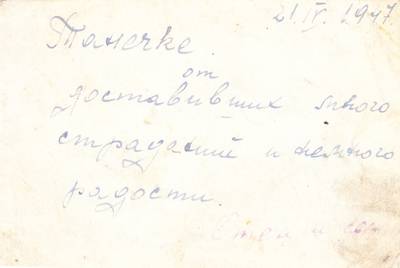 21.IV.1947
Танечке
от
доставивших много
страданий и немного
радости.